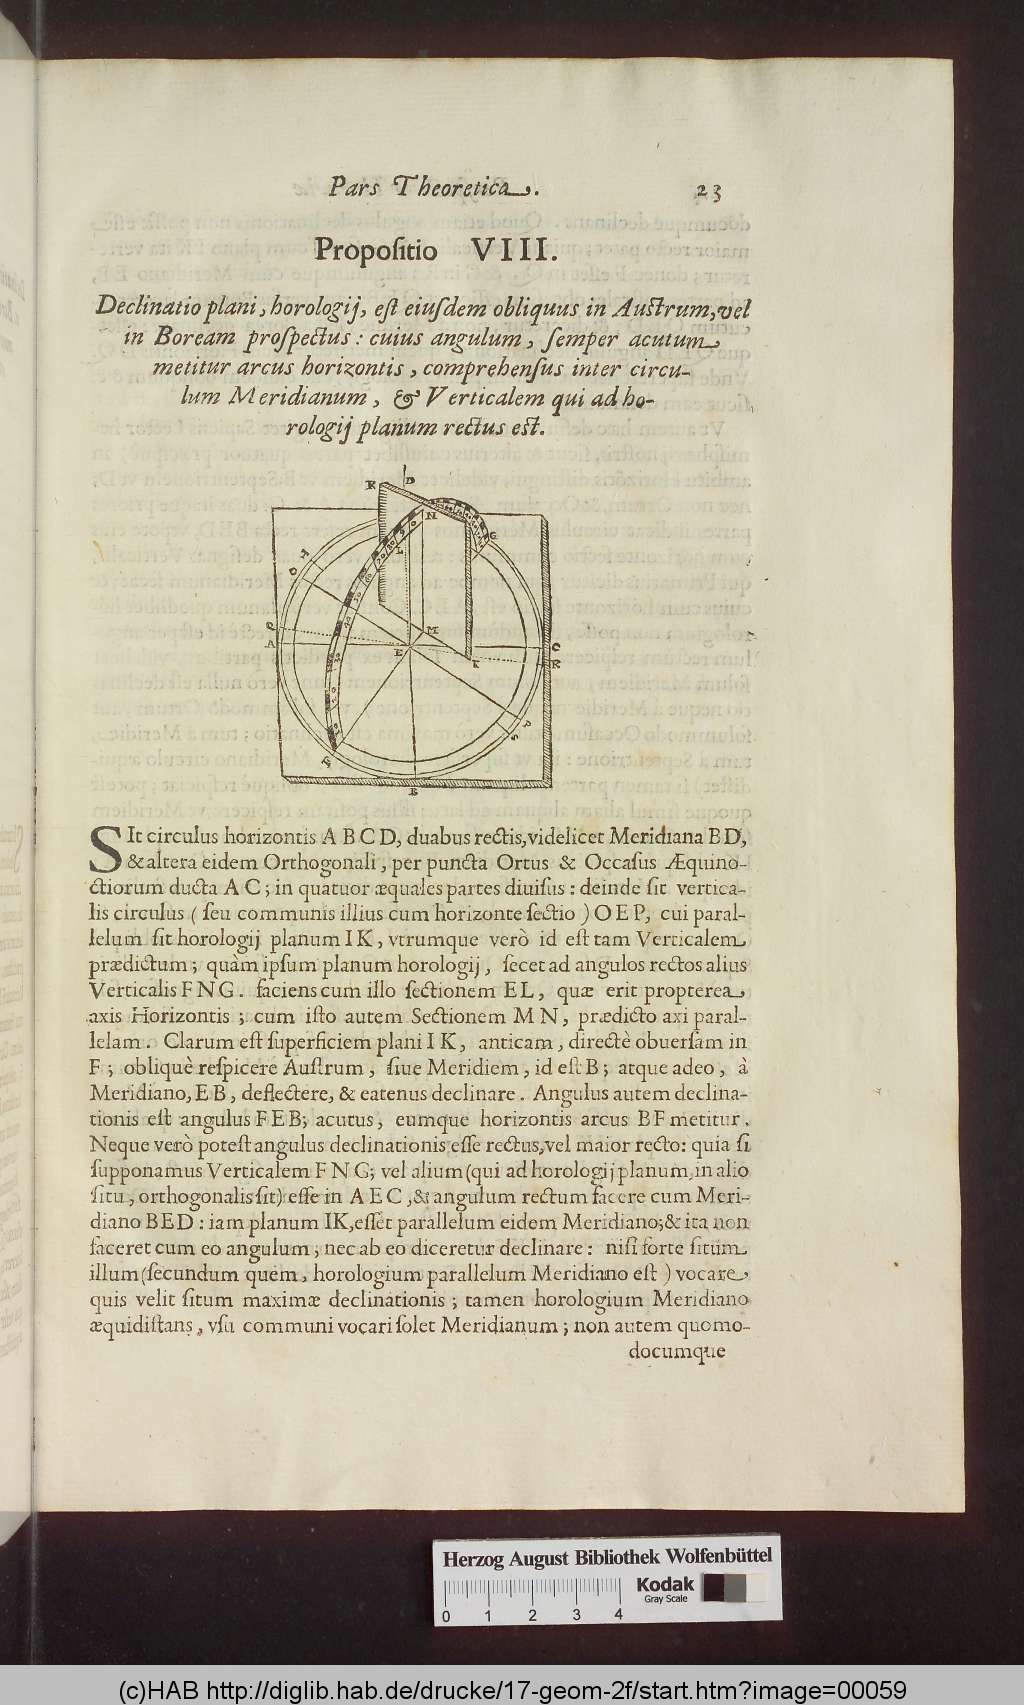 Pars Theoretica. 23
Propoſitio VIII.
Declinatio plani, horologij, eſt eiuſdem obliquus in Auſtrum, vel
in Boream proſpectus: cuius angulum, ſemper acutum
metitur arcus horizontis, comprehenſus inter circu-
lum Meridianum, & Verticalem qui ad ho-
rologij planum rectus eſt.
K D
N
G
L
H
O
Q
A
M
E
C
R
I
P
S
F
B
SIt circulus horizontis A B C D, duabus rectis, videlicet Meridiana B D,
& altera eidem Orthogonali, per puncta Ortus & Occaſus Æquino-
ctiorum ducta A C; in quatuor æquales partes diuiſus: deinde ſit vertica-
lis circulus (ſeu communis illius cum horizonte ſectio) O E P, cui paral-
lelum ſit horologij planum I K, vtrumque verò id eſt tam Verticalem
prædictum; quàm ipſum planum horologij, ſecet ad angulos rectos alius
Verticalis F N G. faciens cum illo ſectionem E L, quæ erit propterea
axis Horizontis; cum iſto autem Sectionem M N, prædicto axi paral-
lelam. Clarum eſt ſuperficiem plani I K, anticam, directè obuerſam in
F; obliquè reſpicere Auſtrum, ſiue Meridiem, id eſt B; atque adeo, à
Meridiano, E B, deflectere, & eatenus declinare. Angulus autem declina-
tionis eſt angulus F E B; acutus, eumque horizontis arcus B F metitur.
Neque verò poteſt angulus declinationis eſſe rectus, vel maior recto: quia ſi
ſupponamus Verticalem F N G; vel alium (qui ad horologij planum, in alio
ſitu, orthogonalis ſit) eſſe in A E C, & angulum rectum facere cum Meri-
diano B E D: iam planum I K, eſſet parallelum eidem Meridiano; & ita non
faceret cum eo angulum; nec ab eo diceretur declinare: niſi forte ſitum
illum (ſecundum quem, horologium parallelum Meridiano eſt) vocare
quis velit ſitum maximæ declinationis; tamen horologium Meridiano
æquidiſtans, vſu communi vocari ſolet Meridianum; non autem quomo-
documque
Herzog August Bibliothek Wolfenbüttel
0 1 2 3 4
Kodak
Gray Scale
(c)HAB http://diglib.hab.de/drucke/17-geom-2f/start.htm?image=00059